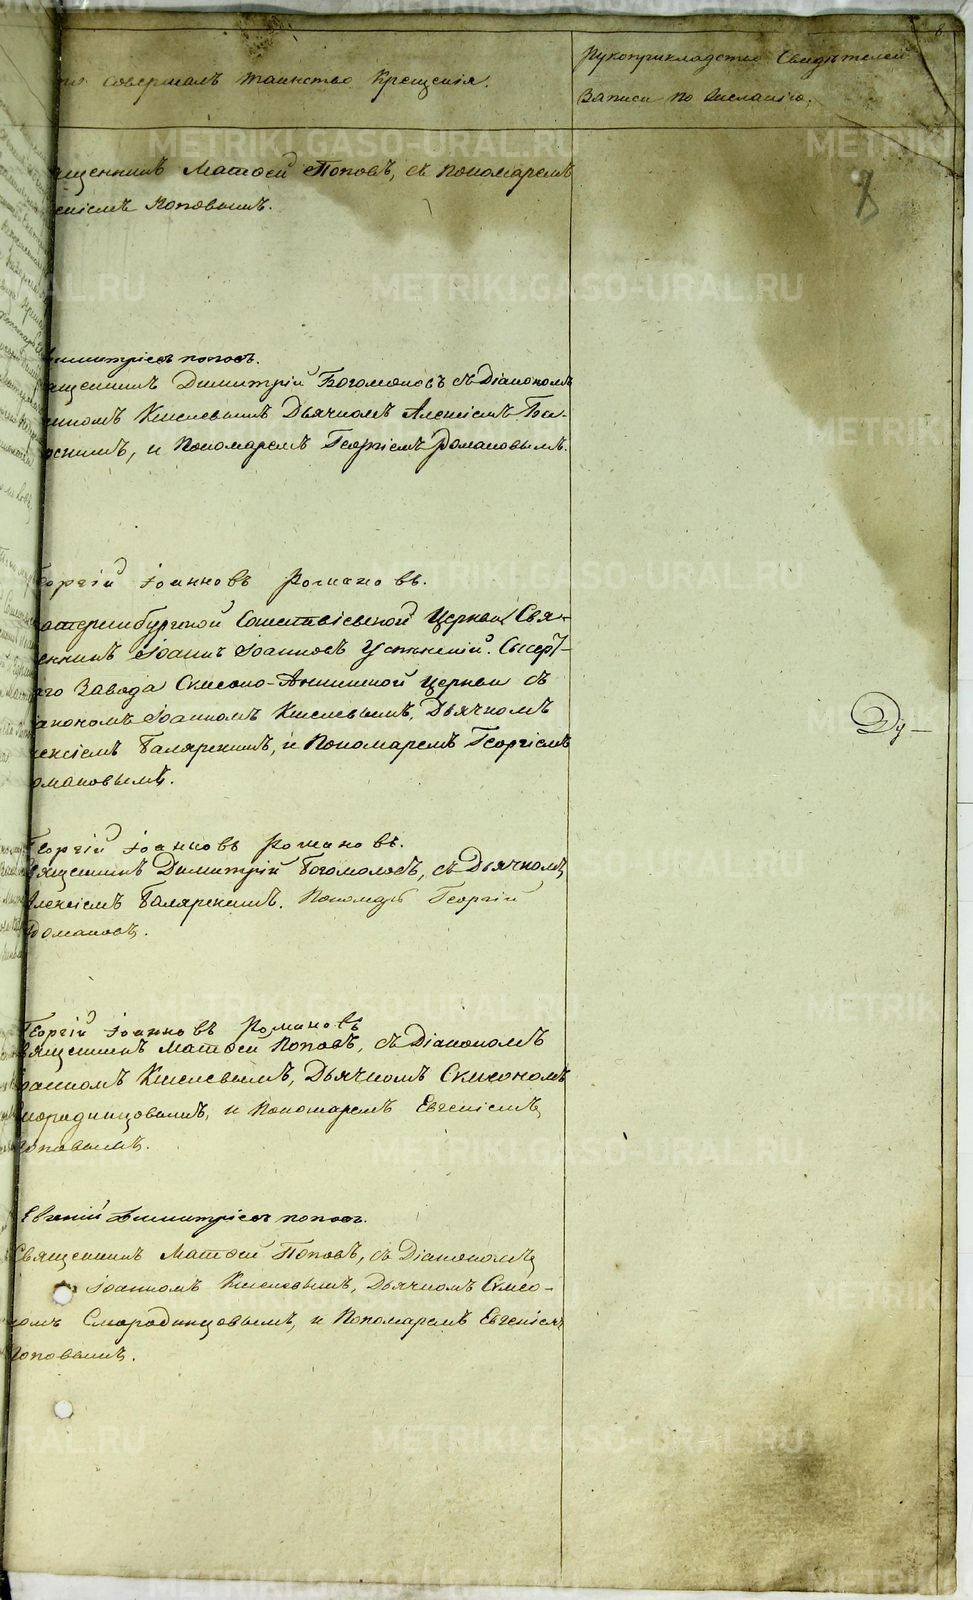 совершалъ таинство Крещенія.
Рукоприкладство Свидѣтелей
Записи по желанію.
8
ященникъ Матѳей Поповъ, съ пономаремъ
геніемъ Поповымъ.
имитріевъ поповъ.
ященникъ Димитрій Богомоловъ съ Діакономъ
анномъ Киселевымъ Дьячкомъ Алексіемъ Ба-
рскимъ, и Пономаремъ Георгіемъ Романовымъ.
еоргій Іоанновъ Романовъ.
катеринбургской Сошествіевской Церкви Свя-
енникъ Іоаннъ Іоанновъ Сысерт-
аго Завода Симеоно-Аннинской Церкви съ
іакономъ Іоанномъ Киселевымъ, Дьячкомъ
лексіемъ Балярскимъ, и Пономаремъ Георгіемъ
омановымъ.
Ду—
Георгій Іоанновъ Романовъ.
вященникъ Димитрій Богомоловъ, съ Дьячкомъ
Алексіемъ Балярскимъ. Пономарь Георгій
Романовъ.
Георгій Іоанновъ Романовъ
вященникъ Матѳей Поповъ, съ Діакономъ
оанномъ Киселевымъ, Дьячкомъ Симеономъ
мородинцовымъ, и Пономаремъ Евгеніемъ
оповымъ.
Евгеній Димитріевъ поповъ.
Священникъ Матѳей Поповъ, съ Діакономъ
Іоанномъ Киселевымъ, Дьячкомъ Симео-
номъ Смородинцовымъ, и Пономаремъ Евгеніемъ
Поповымъ.
METRIKI.GASO-URAL.RU